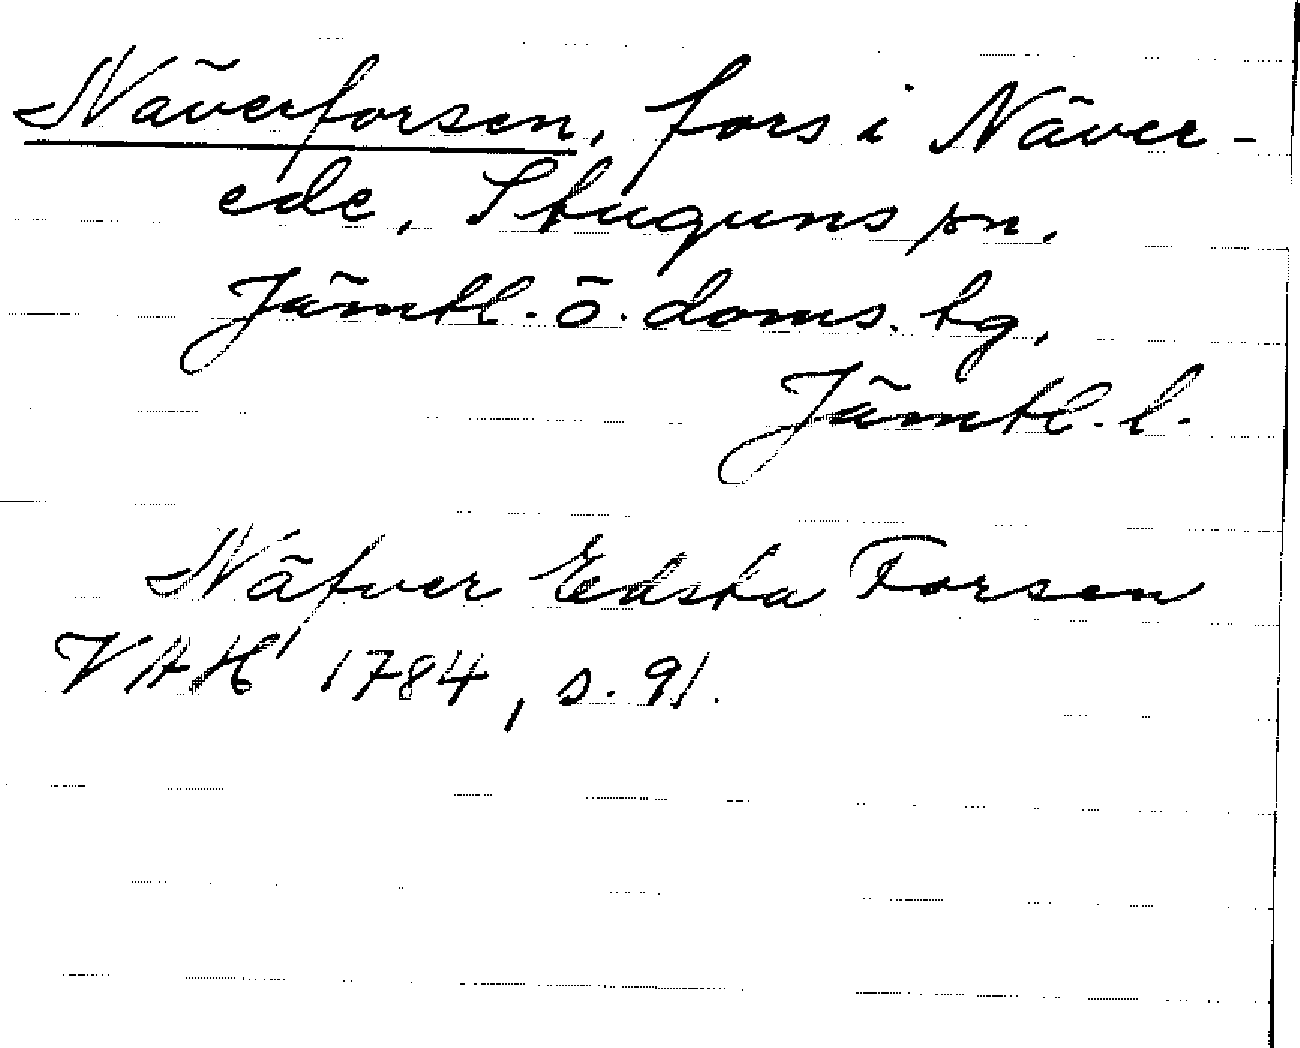 Näverforsen, fors i Näver-
ede, Stuguns sn.
Jämtl. ö. doms. tg.
Jämtl. l.
Näfver Edsta Forsen
VAH 1784, s. 91.